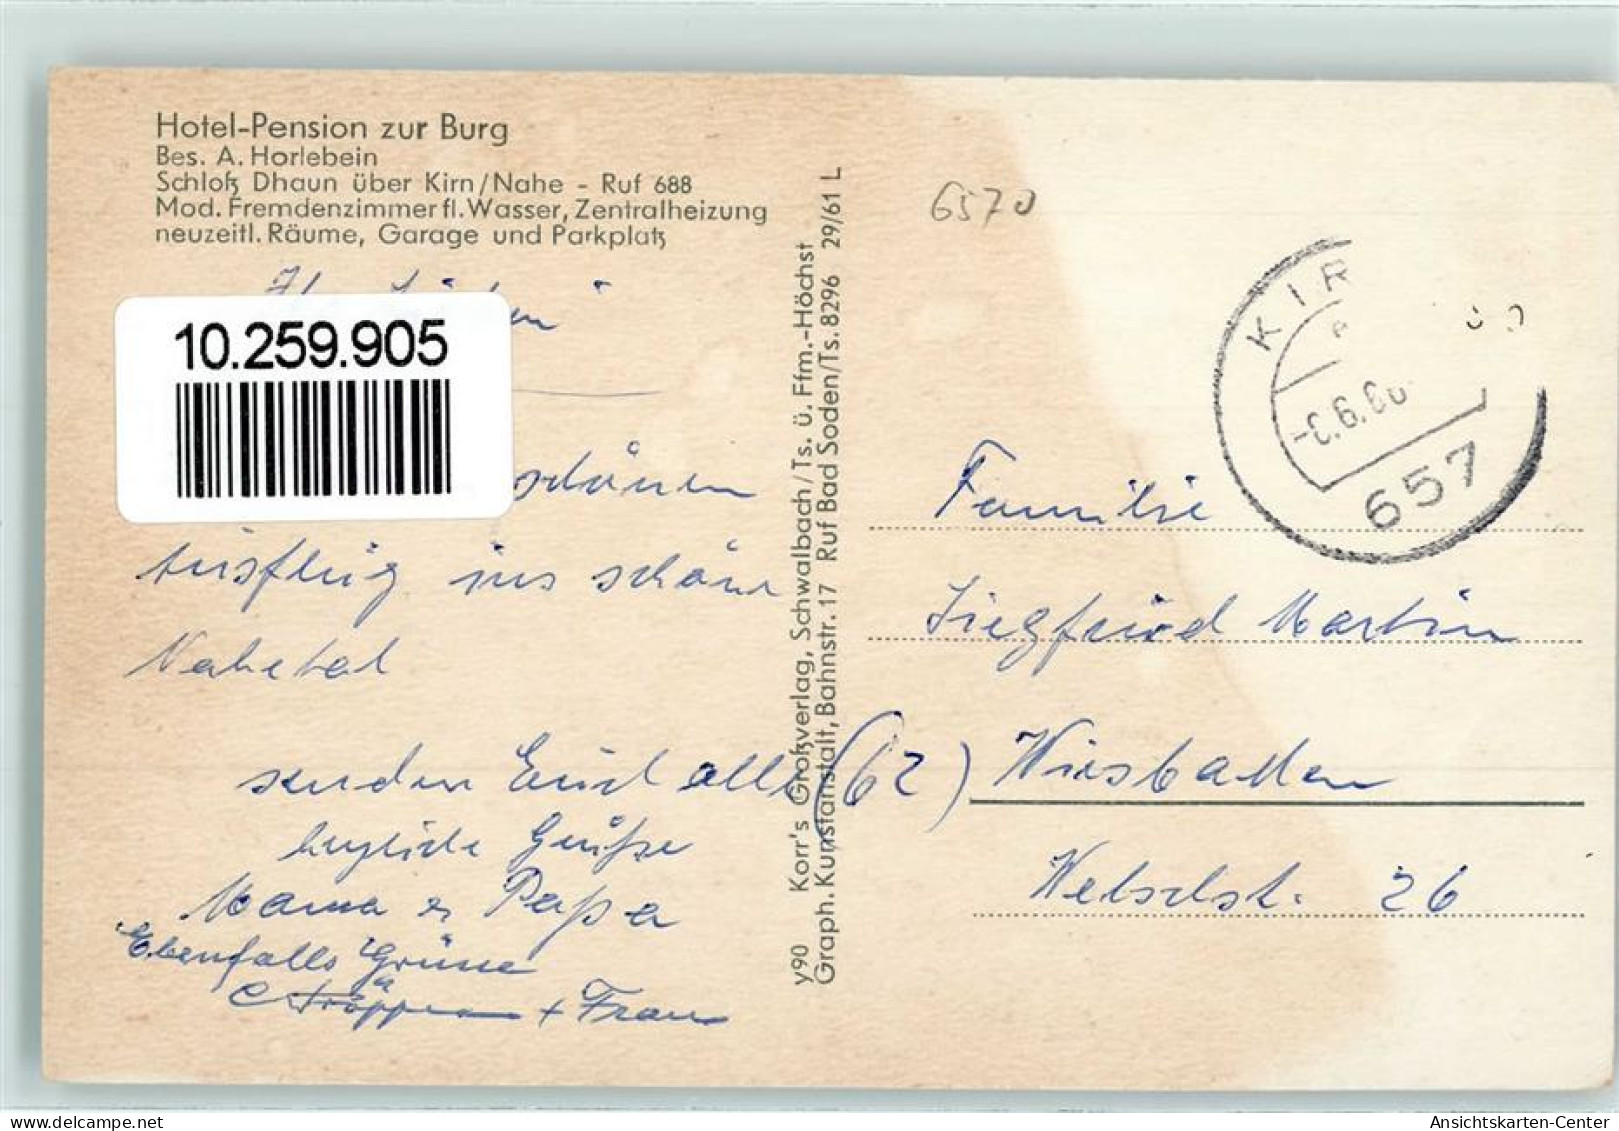 Hotel-Pension zur Burg
Bes. A. Horlebein
Schloß Dhaun über Kirn/Nahe - Ruf 688
Mod. Fremdenzimmer fl. Wasser, Zentralheizung
neuzeitl. Räume, Garage und Parkplatz
10.259.905
schönen
Ausflug ins schöne
Nahetal
senden Euch alle
herzliche Grüße
Mama u. Papa
Ebenfalls Grüsse
+ Frau
y90 Korr's Großverlag, Schwalbach/Ts. ü. Ffm.-Höchst
Graph. Kunstanstalt, Bahnstr. 17 Ruf Bad Soden/Ts. 8296 29/61 L
6570
KIR
6.6
657
Familie
Siegfried Martin
(62) Wiesbaden
Welschst. 26
Ansichtskarten-Center